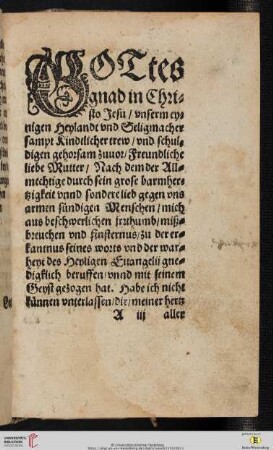 GOTtes
gnad in Chri-
sto Jesu / vnserm ey-
nigen Heylandt vnd Seligmacher
sampt Kindtlicher trew / vnd schul-
digen gehorsam zuuor / Freundliche
liebe Mutter / Nach dem der All-
mechtige durch sein grose barmher-
tzigkeit vnnd sondere lieb gegen vns
armen sündigen Menschen / mich
aus beschwerlichen jrthumb / miß-
breuchen vnd finsternus / zu der er-
kantnus seines worts vnd der war-
heyt des Heyligen Euangelii gne-
digklich beruffen / vnnd mit seinem
Geyst gezogen hat. Habe ich nicht
künnen vnterlassen / dir / meiner hertz
A iij aller